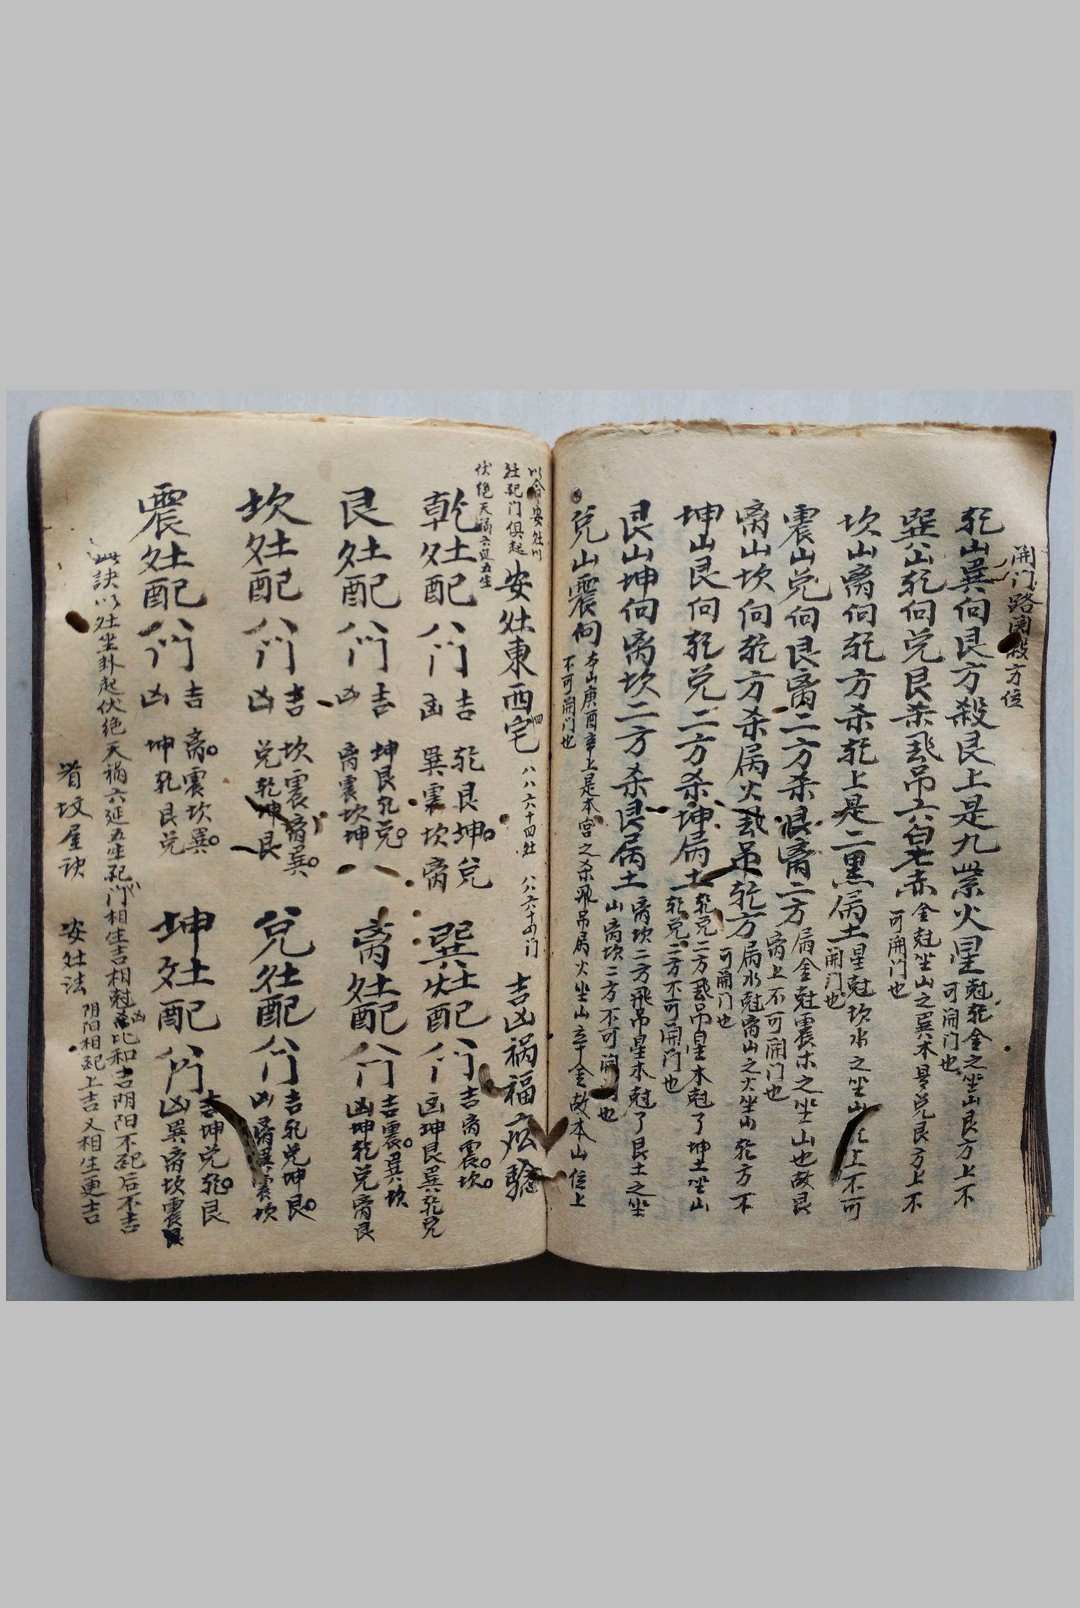 開門路関殺方位
乾山巽向艮方殺艮上是九紫火星尅乾金之坐山艮方上不可開門也
巽山乾向兌艮杀飛吊六白七赤金尅坐山之巽木是兌艮方上不可開門也
坎山离向乾方杀乾上是二黑属土星尅坎水之坐山上不可開門也
震山兌向艮离二方杀艮离二方属金尅震木之坐山也故艮离上不可開門也
离山坎向乾方杀属火飛吊乾方属水尅离山之火坐山乾方不可開門也
坤山艮向乾兌二方杀坤属土乾兌二方飛吊星木尅了坤土坐山乾兌二方不可開門也
艮山坤向离坎二方杀艮属土离坎二方飛吊星木尅了艮土之坐山离坎二方不可開門也
兌山震向本山庚酉辛上是本宫之杀飛吊属火坐山辛金故本山位上不可開門也
安灶
灶配门俱起
伏绝天祸六延五生
安灶東西四宅 八八六十四灶 八八六十四门 吉凶祸福应驗
乾灶配八门 吉 乾艮坤兌 凶 巽震坎离
巽灶配八门 吉离震坎 凶坤艮巽乾兌
艮灶配八门 吉 坤艮乾兌 凶 离震坎坤
离灶配八门 吉震巽坎 凶坤乾兌离艮
坎灶配八门 吉 坎震离巽 凶 兌乾坤艮
兌灶配八门 吉乾兌坤艮 凶离巽震坎
震灶配八门 吉 离震坎巽 凶 坤乾艮兌
坤灶配八门 吉坤兌乾艮 凶巽离坎震
此訣以灶坐卦起伏绝天祸六延五生配门相生吉相尅凶比和吉阴阳不配后不吉
阴阳相配上吉又相生更吉
肖坟屋訣 安灶法